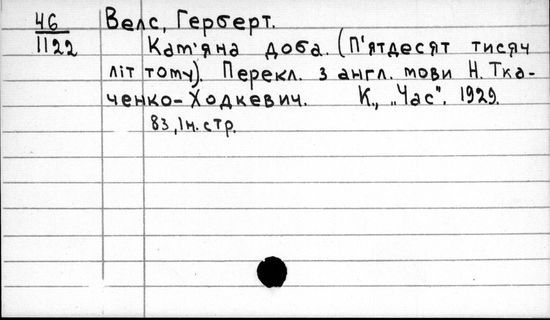 46 Велс, Герберт.
1122 Кам'яна доба. (П'ятдесят тисяч
літ тому). Перекл. з англ. мови Н. Тка-
ченко-Ходкевич. К., „Час". 1929.
83, Iн. стр.